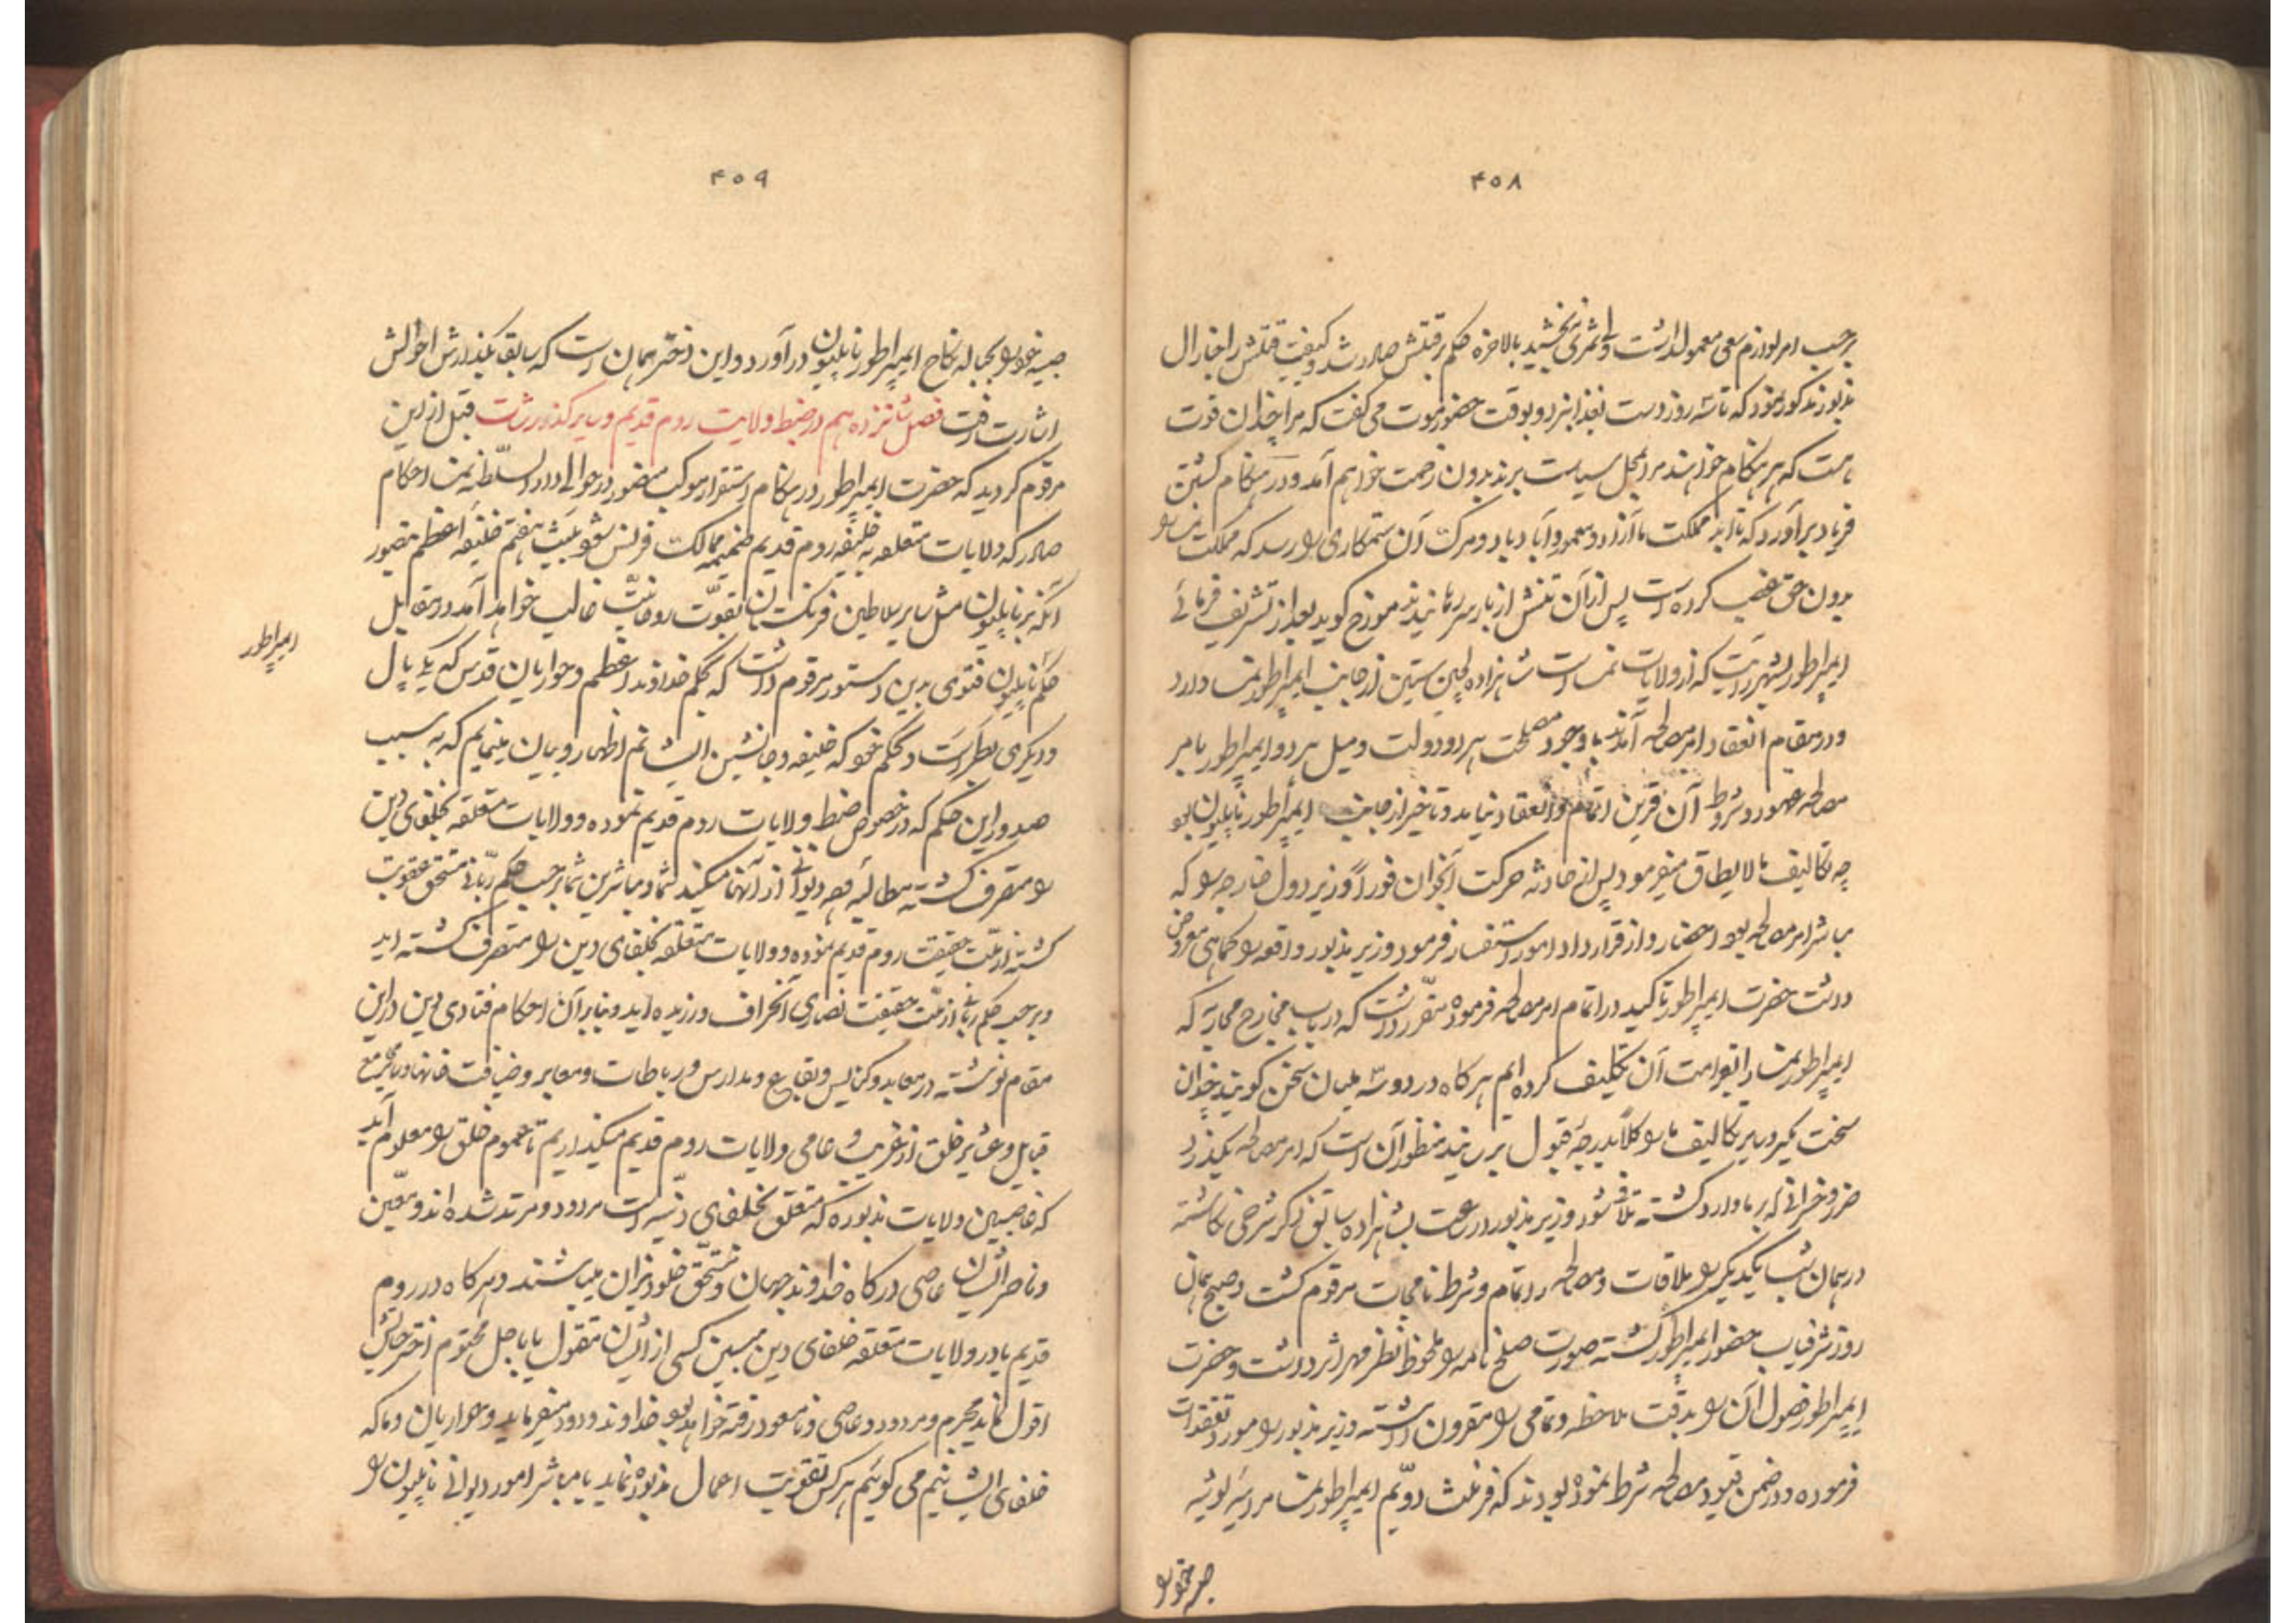 ۴۰۸
برحسب امر لوازم سعی معمول داشت ولی ثمری نبخشید بالاخره حکم بر قتلش صادر شد و کیفیت قتلش را جنرال
مذبور مذکور نمود که تا سه روز دست بغذا نبرد و بوقت حضور موت می گفت که مرا چندان قوت
هست که هر هنگام خواهند مرا بمحل سیاست برند بدون زحمت خواهم آمد و در هنگام کشتن
فریاد برآورد که تا ابد مملکت ما آزاد و معمور و آباد باد و مرگ آن ستمکاری را رسد که مملکت را
بدون حق غصب کرده است پس از آن تنش از بار سر رهانیدند مورخ گوید بعد از تشریف فرمائی
ایمپراطور بشهر که از ولایات نمسه است شاهزاده از جانب ایمپراطور نمسا وارد
و در مقام انعقاد امر مصالحه آمدند با وجود مصلحت هر دو دولت و میل هر دو ایمپراطور بامر
مصالحه عهود و شروط آن قرین اتمام و انعقاد نیامد و تاخیر از جانب ایمپراطور ناپلیون بود
چه تکالیف مالایطاق میفرمود پس از حادثه حرکت آنجوان فوراً وزیر دول خارجه را که
مباشر امر مصالحه بود احضار و از قرارداد امور استفسار فرمود وزیر مذبور واقعه را کماهی معروض
داشت حضرت ایمپراطور تاکید در اتمام امر مصالحه فرموده مقرر داشت که در باب مخارج محاربه که
ایمپراطور نمسا را بغرامت آن تکلیف کرده ایم هرگاه در دو سه ملیان سخن گویند چندان
سخت مگیر و سایر تکالیف ما را کلاً بدرجه قبول برسانید منظور آن است که امر مصالحه بگذرد
ضرر و خسرانی که بر ما وارد گشته تلافی شود وزیر مذبور در ساعت بشاهزاده سابق ذکر شرحی نگاشته
در همان شب یکدیگر را ملاقات و مصالحه را تمام و شرط نامجات مرقوم گشت و صبح همان
روز شرفیاب حضور ایمپراطور گشته صورت صلح نامه را ملحوظ نظر مهر اثر داشت و حضرت
ایمپراطور فصول آن را بدقت ملاحظه و تمامی را مقرون داشته وزیر مذبور را مورد تفقدات
فرموده و در ضمن قیود مصالحه شرط نموده بودند که فرنث دویم ایمپراطور نمسا مریه لوئیه
صبیه خود را
۴۰۹
صبیه خود را بحباله نکاح ایمپراطور ناپلیون درآورد و این دختر همان است که سابقا بگذارش احوالش
اشارت رفت فصل شانزدهم در ضبط ولایت روم قدیم و سایر گذارشات قبل از این
مرقوم گردید که حضرت ایمپراطور در هنگام استقرار موکب منصور در حوالی دارالسلطنه نمسا احکام
صادر که ولایات متعلقه به خلیفه روم قدیم ضمیمه ممالک فرانس شود هفتم خلیفه اعظم بتصور
آنکه بر ناپلیون مثل سایر سلاطین فرنگستان بقوت روحانیت غالب خواهد آمد در مقابل
حکم ناپلیون فتوی برین دستور مرقوم داشت که بحکم خداوند اعظم و حواریان قدس که یکی پال
ایمپراطور
و دیگری پطر است و بحکم خود که خلیفه و جانشین ایشانم اظهار و بیان مینمایم که به سبب
صدور این حکم که در خصوص ضبط ولایات روم قدیم نموده و ولایات متعلقه بخلفای دین
را متصرف گشته مطالبه وجه دیوانی از آنها میکنید شما و مباشرین شما برحسب حکم ربانی مستحق عقوبت
گشته از ملت حقیقت روم قدیم نموده و ولایات متعلقه بخلفای دین را متصرف گشته اید
و برحسب حکم ربانی از ملت حقیقت نصاری انحراف ورزیده اید و بنابرآن احکام فتاوی دین در این
مقام نوشته در معابد و کنایس و بقاع و مدارس و رباطات و معابر و ضیافت خانها و مجامع
قبایل و عشایر خلق از غریب و عامی ولایات روم قدیم میگذاریم تا عموم خلق را معلوم آید
که غاصبین ولایات مذبوره که متعلق بخلفای دنییه است مردود و مرتد شده اند و معین
و ناصر ایشان عاصی درگاه خداوند جهان و مستحق خلود نیران میباشند و هرگاه در روم
قدیم یا در ولایات متعلقه خلفای دین مبین کسی از ایشان مقتول یا باجل محتوم اختر حیاتش
افول نماید مجرم و مردود و عاصی و نامسعود رفته خواهد بود خداوند ودود میفرماید و حواریان و ما که
خلفای ایشانیم می گوئیم هرکس تقویت اعمال مذبوره نماید یا مباشر امور دیوانی ناپلیون را